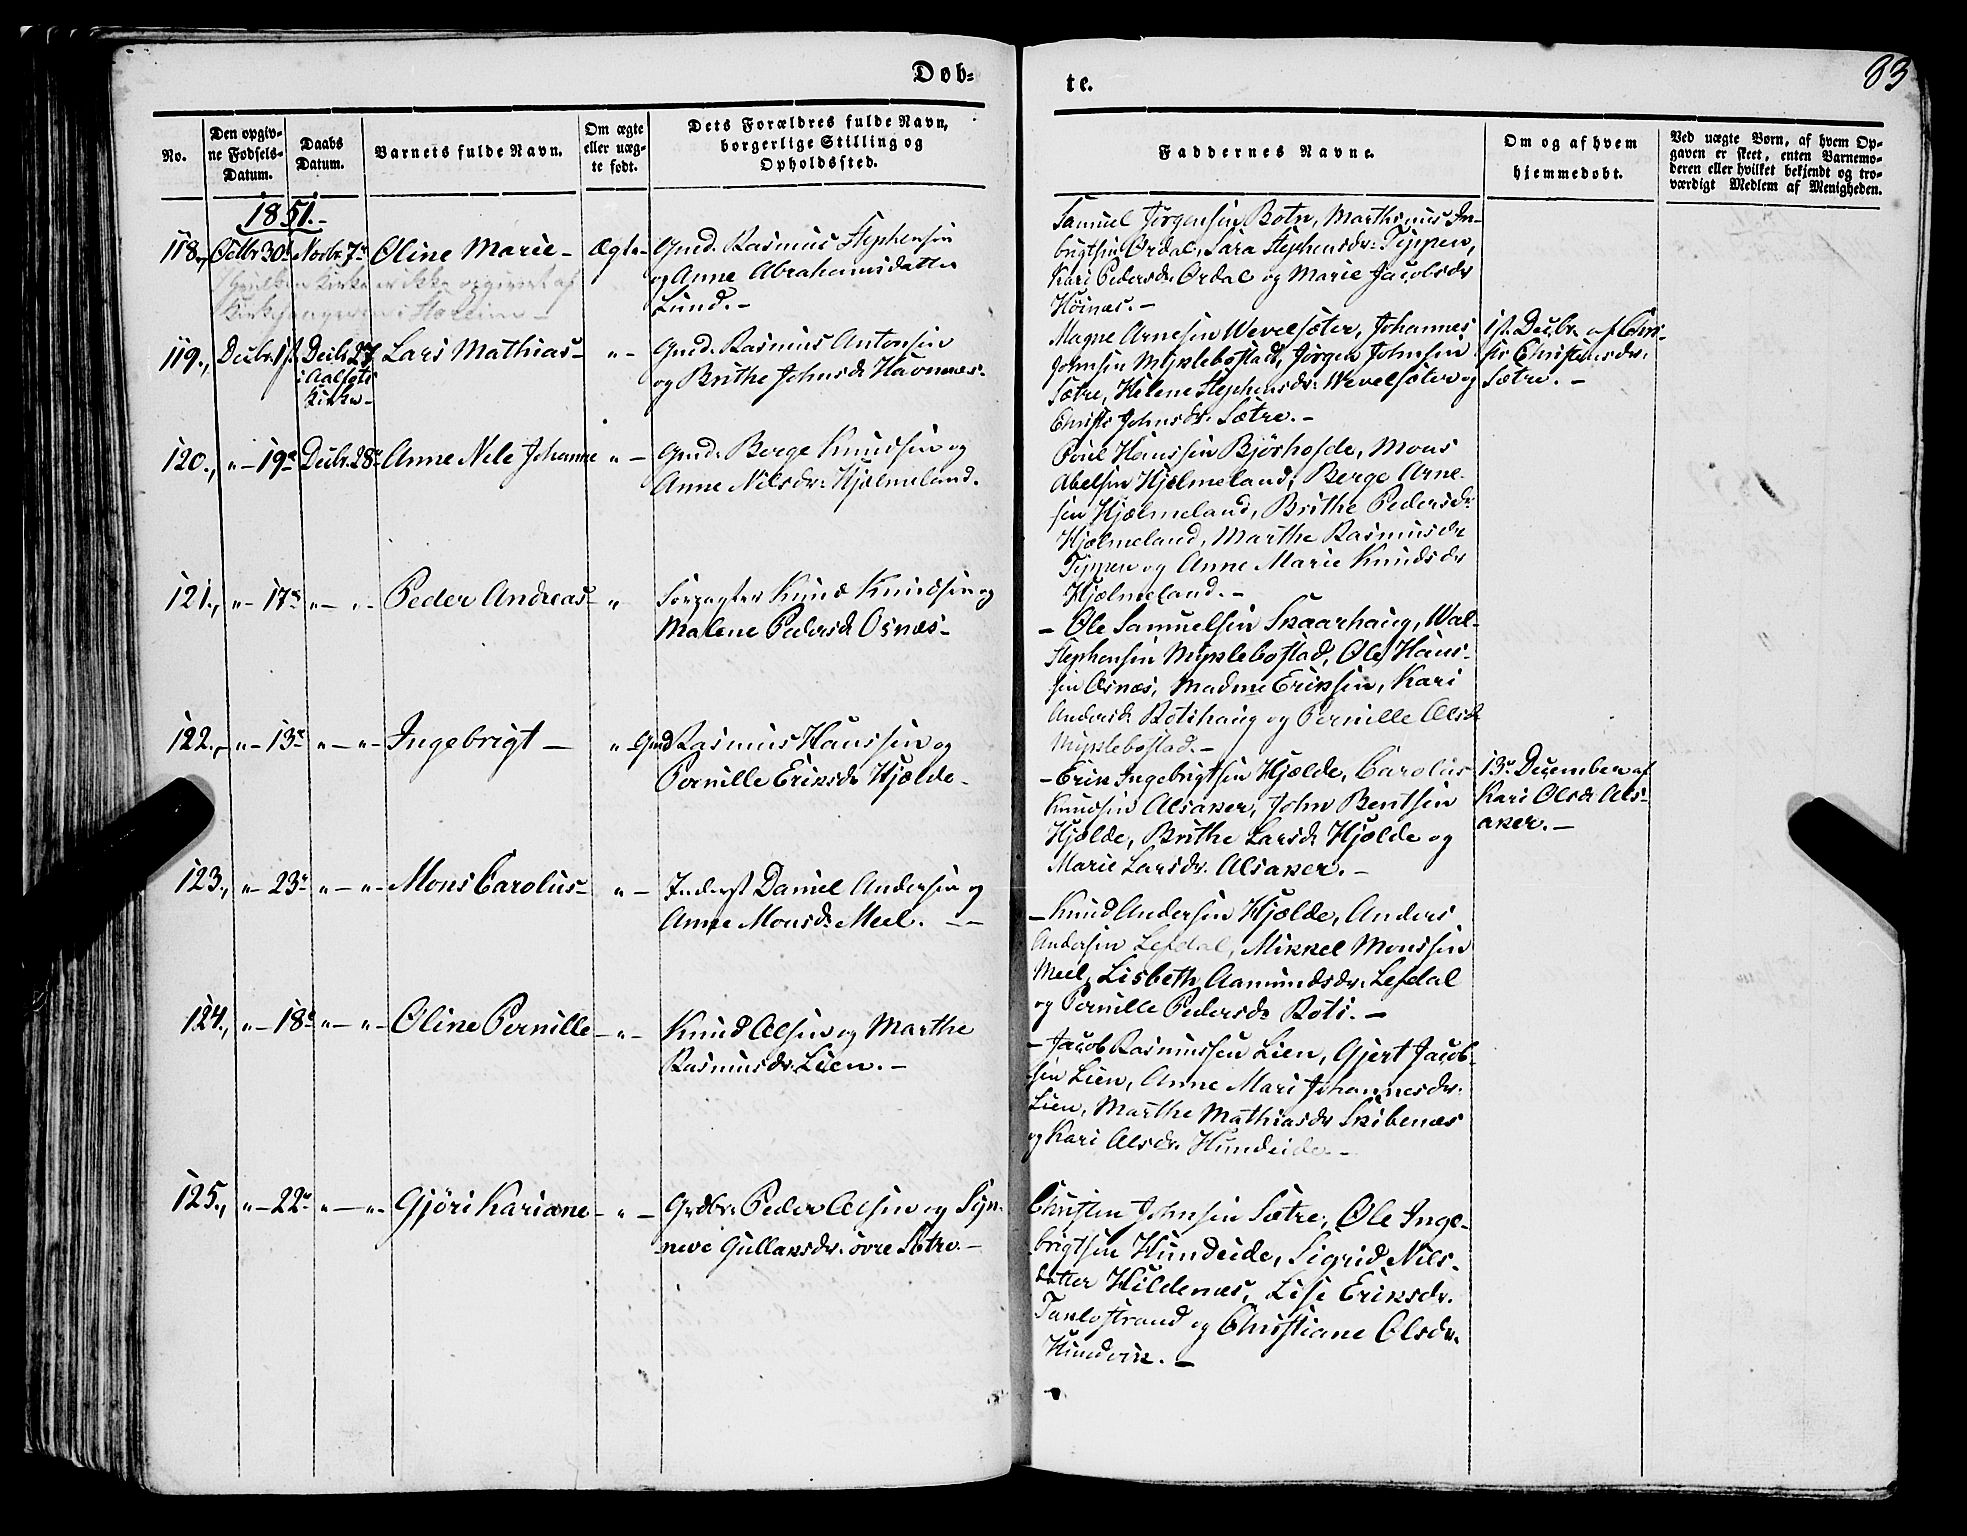 Døb-
te.
83
No.
Den opgiv-
ne Fødsels-
Datum.
Daabs
Datum.
Barnets fulde Navn.
Om ægte
eller uæg-
te født.
Dets Forældres fulde Navn,
borgerlige Stilling og
Opholdssted.
Faddernes Navne.
Om og af hvem
hjemmedøbt.
Ved uægte Børn, af hvem Op-
gaven er skeet, enten Barnemo-
deren eller hvilket bekjendt og tro-
værdigt Medlem af Menigheden.
1851.-
118., Octbr 30t Novbr. 7de Oline Marie - Ægte - Gmd. Rasmus Stephensen
og Anne Abrahamsdatter
Lund. -
er ikke opgivet af
Samuel Jørgensen Botn, Marthinus In-
brigtsen Ordal, Sara Stephensdr. Tippen,
Kari Pedersdr Ordal og Marie Jacobsdr
Høinæs. -
119., Decbr. 1st. Decbr 27 Lars Mathias - " - Gmd. Rasmus Antonsen
i Aalfots
Kirke -
og Brithe Johnsdr Havnnæs.
Magne Arnesen Wevelsæter, Johannes
Johnsen Myklebostad, Jørgen Johnsen
Sætre, Helene Stephensdr. Wevelsæter og
Christi Johnsdr. Sætre. -
1st. Decbr. af Chri-
sti Christensdr.
Sætre. -
120., " - 19de Decbr. 28de Anne Nele Johanne " - Gmd. Berge Knudsen og
Anne Nilsdr. Hjelmeland.
Poul Hanssen Bjørhofde, Mons
Abelsen Hjelmeland, Berge Arne-
sen Hjælmeland, Brithe Pedersdr
Hjælmeland, Marthe Rasmusdr
Tippen og Anne Marie Knudsdr
Hjælmeland. -
121., " - 17de " - " - Peder Andreas - " Forpagter Knud Knudsen og
Malene Pedersdr Osnæs -
- Ole Samuelsen Skaarhaug, Wal-
Stephensen Myklebostad, Ole Hans-
sen Osnæs, Madme Eriksen, Kari
Andersdr Rotihaug og Pernille Olsdr
Myklebostad. -
122., - " - 13de " - " - Ingebrigt - " - Gmd Rasmus Hanssen og
Pernille Eriksdr Hjelde -
- Erik Ingebrigtsen Hjelde, Carolus
Knudsen Alsaker, John Bentsen
Hjelde, Brithe Larsdr Hjelde og
Marie Larsdr. Alsaker. -
13de December af
Kari Olsdr Als-
aker. -
123., " - 23de " - " - Mons Carolus - " - Inderst Daniel Andersen og
Anne Monsdr Meel. - -
- Knud Andersen Hjelde, Anders
Andersen Lefdal, Mikkel Monssen
Meel, Lisbeth Aamundsdr. Lefdal
og Pernille Pedersdr Roti. -
124., " - 18de " - " - Oline Pernille - " - Knud Olsen og Marthe
Rasmusdr. Lien. -
- Jacob Rasmussen Lien, Gjert Jacob-
sen Lien, Anne Mari Johannesdr.
Lien, Marthe Mathiasdr Skibenæs
og Kari Olsdr. Hundeide -
125., " - 22de " - " - Gjøri Kariane - " - Grdbr. Peder Olsen og Syn-
neve Gullaksdr. øvre Sætre. -
Christen Johnsen Sætre, Ole Inge-
brigtsen Hundeide, Sigrid Nils-
datter Hildenæs, Lise Eriksdr.
Taklostrand og Christiane Olsdr.
Hundvik. -